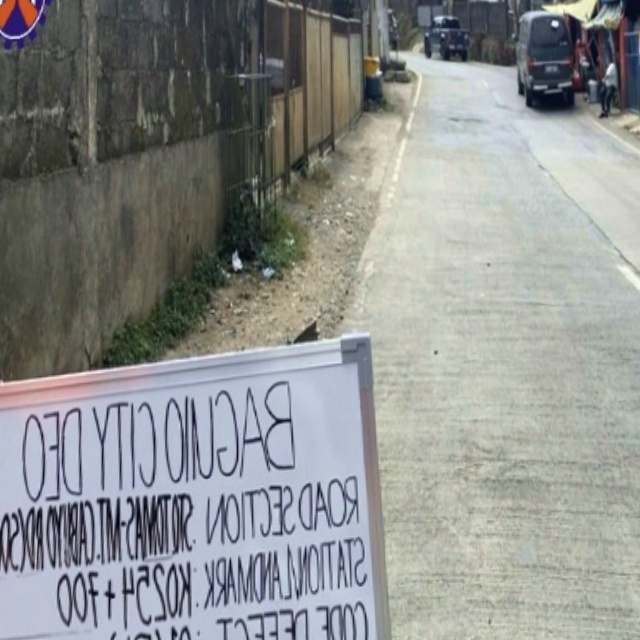 BAGUIO CITY DEO
ROAD SECTION: STO.TOMAS-MT.CABUYAO
STATION/LANDMARK: K0254+700
CODE DEFECT: